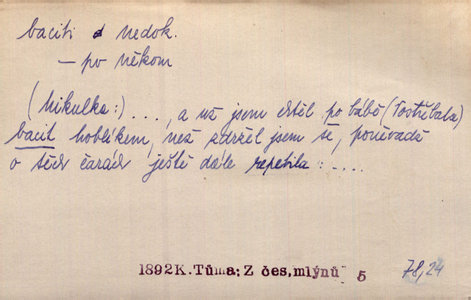 baciti nedok.
— po někom
(Mikulka:) . . . ., a už jsem chtěl po bábě (Tostřebala)
bacit hoblíkem, než zdržel jsem se, poněvadž
o těch čarách ještě dále repetila : . . . .
1892K.Tůma: Z čes.mlýnů 5
78,24